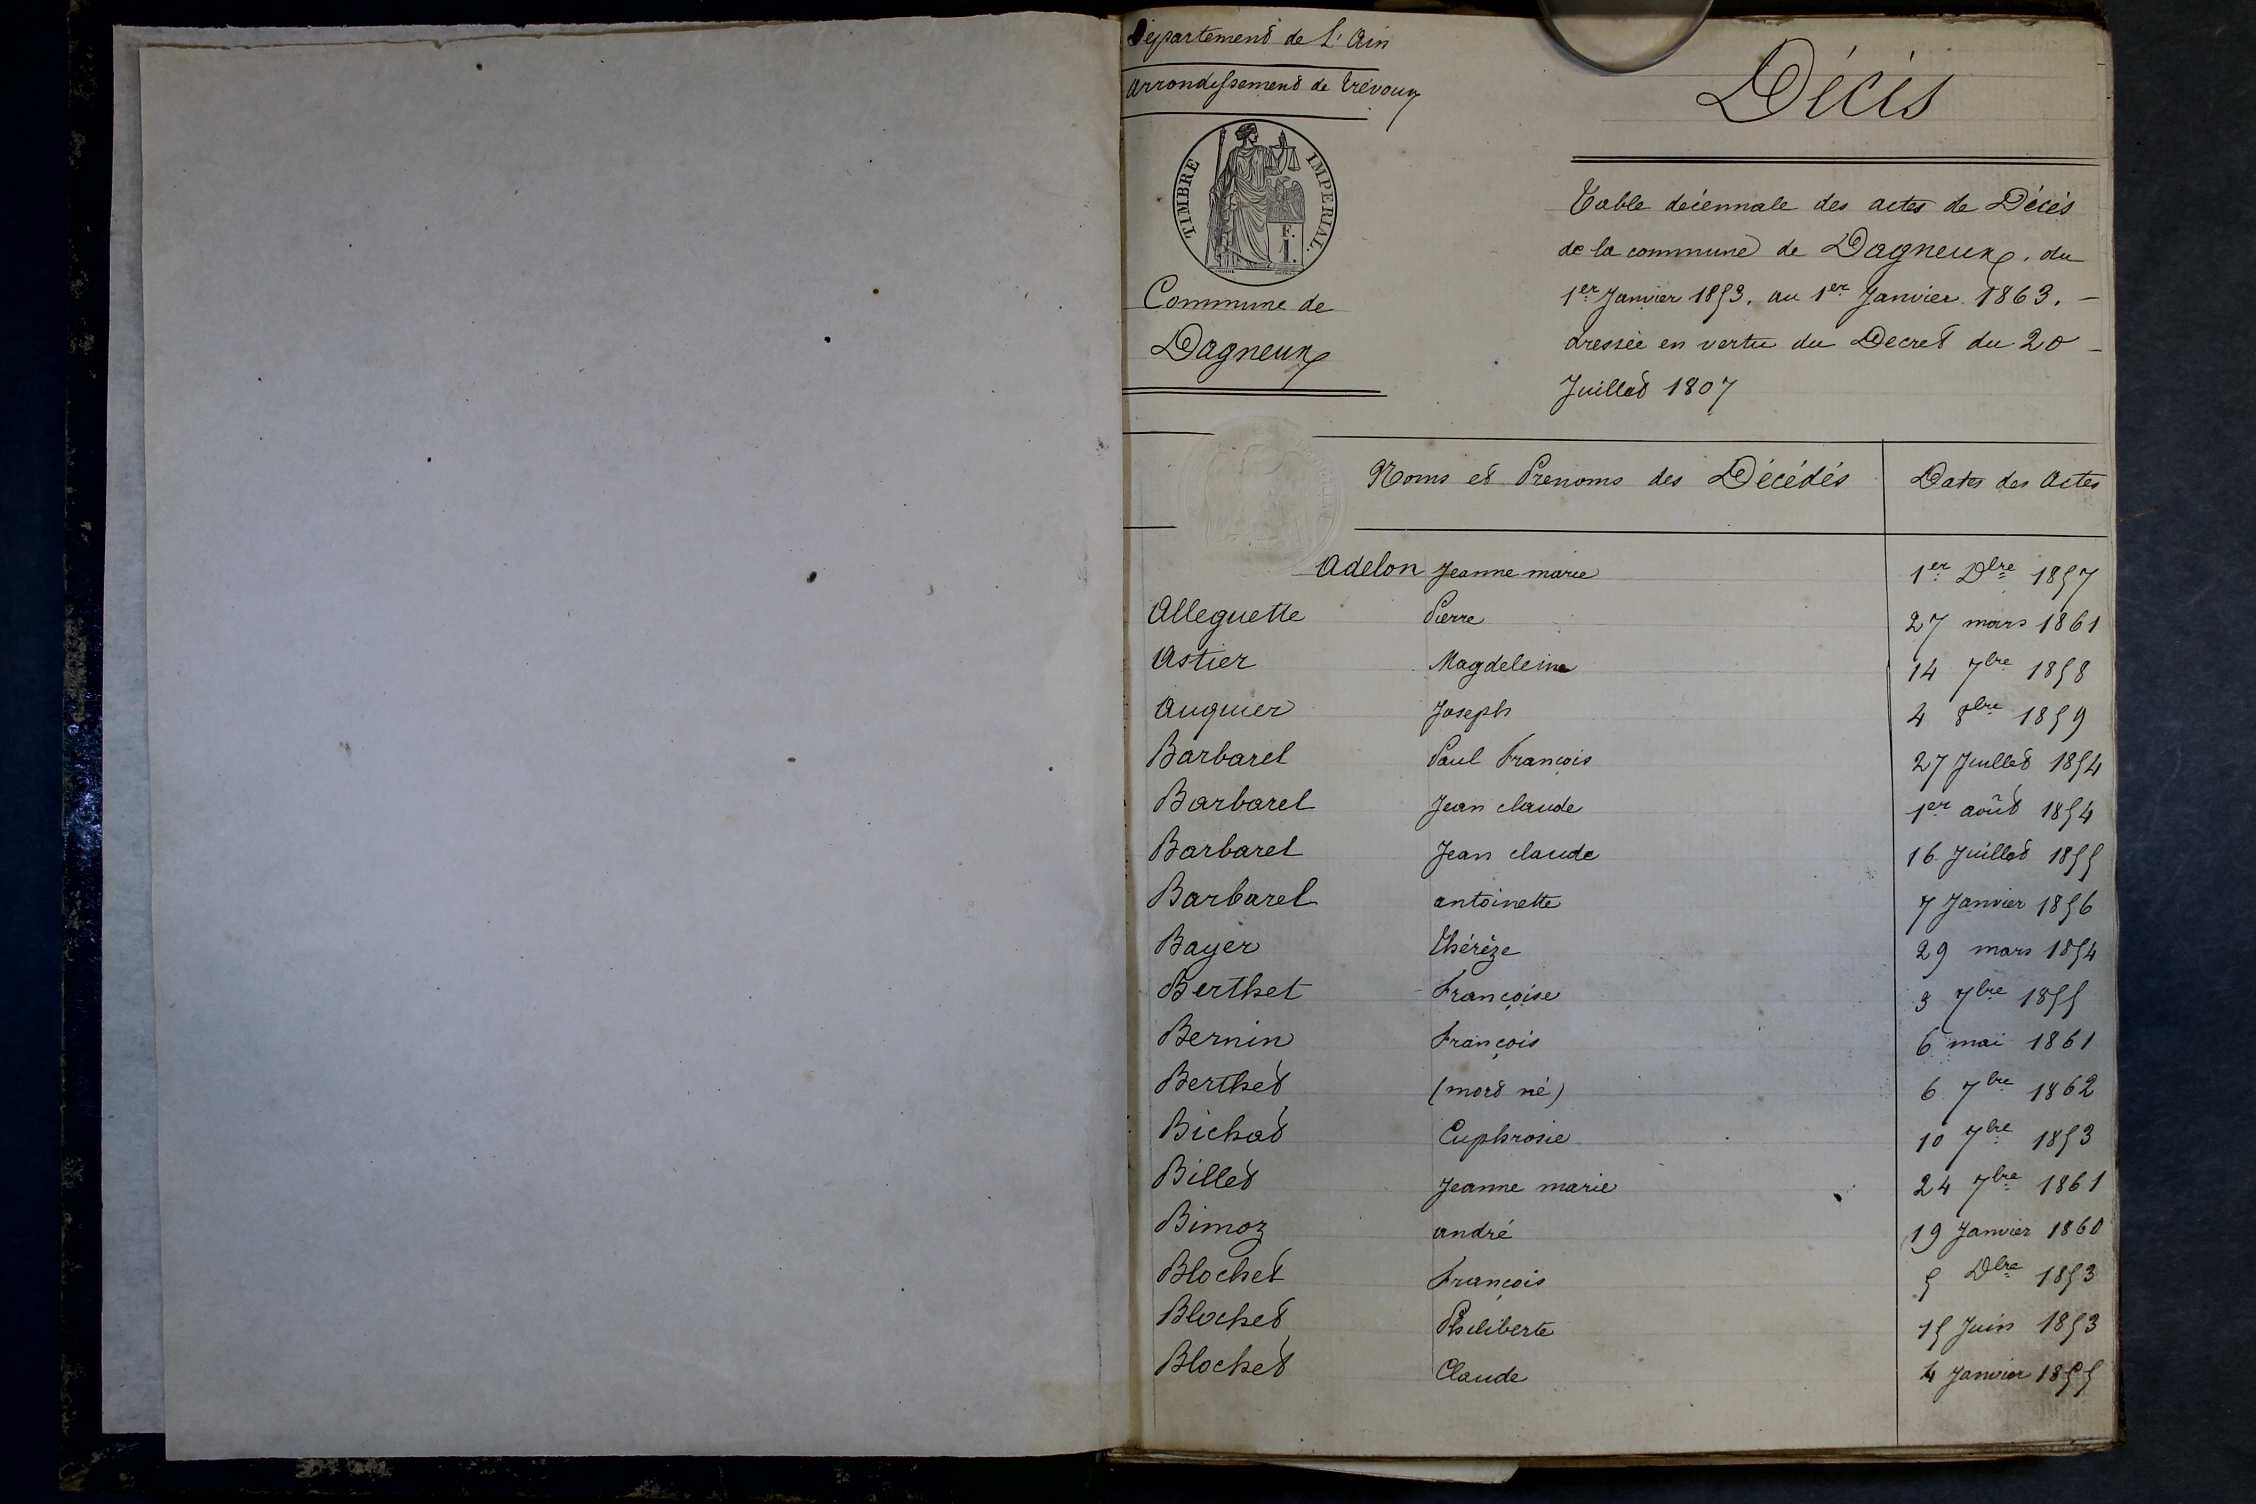 Département de L'Ain
Arrondissement de Trévoux
TIMBRE IMPERIAL.
F.
1.
Commune de
Dagneux
Décès
Table décennale des actes de Décés
de la commune de Dagneux, du
1er Janvier 1853, au 1er Janvier 1863. -
dressée en vertu du Decret du 20 -
Juillet 1807
Noms et Prenoms des Décédés Dates des Actes
Adelon Jeanne marie 1er Dbre 1857
Alleguette Pierre 27 mars 1861
Astier Magdeleine 14 7bre 1858
Auguier Joseph 4 8bre 1859
Barbaret Paul François 27 Juillet 1854
Barbaret Jean claude 1er août 1854
Barbaret Jean claude 16 Juillet 1855
Barbaret antoinette 7 Janvier 1856
Bayer Thérèze 29 mars 1854
Berthet Françoise 3 7bre 1855
Bernin François 6 mai 1861
Berthet (mort né) 6 7bre 1862
Bichat Euphrosie 10 7bre 1853
Billet Jeanne marie 24 7bre 1861
Bimoz andré 19 Janvier 1860
Blochet François 5 Dbre 1853
Blochet Philiberte 15 Juin 1853
Blochet Claude 4 Janvier 1855